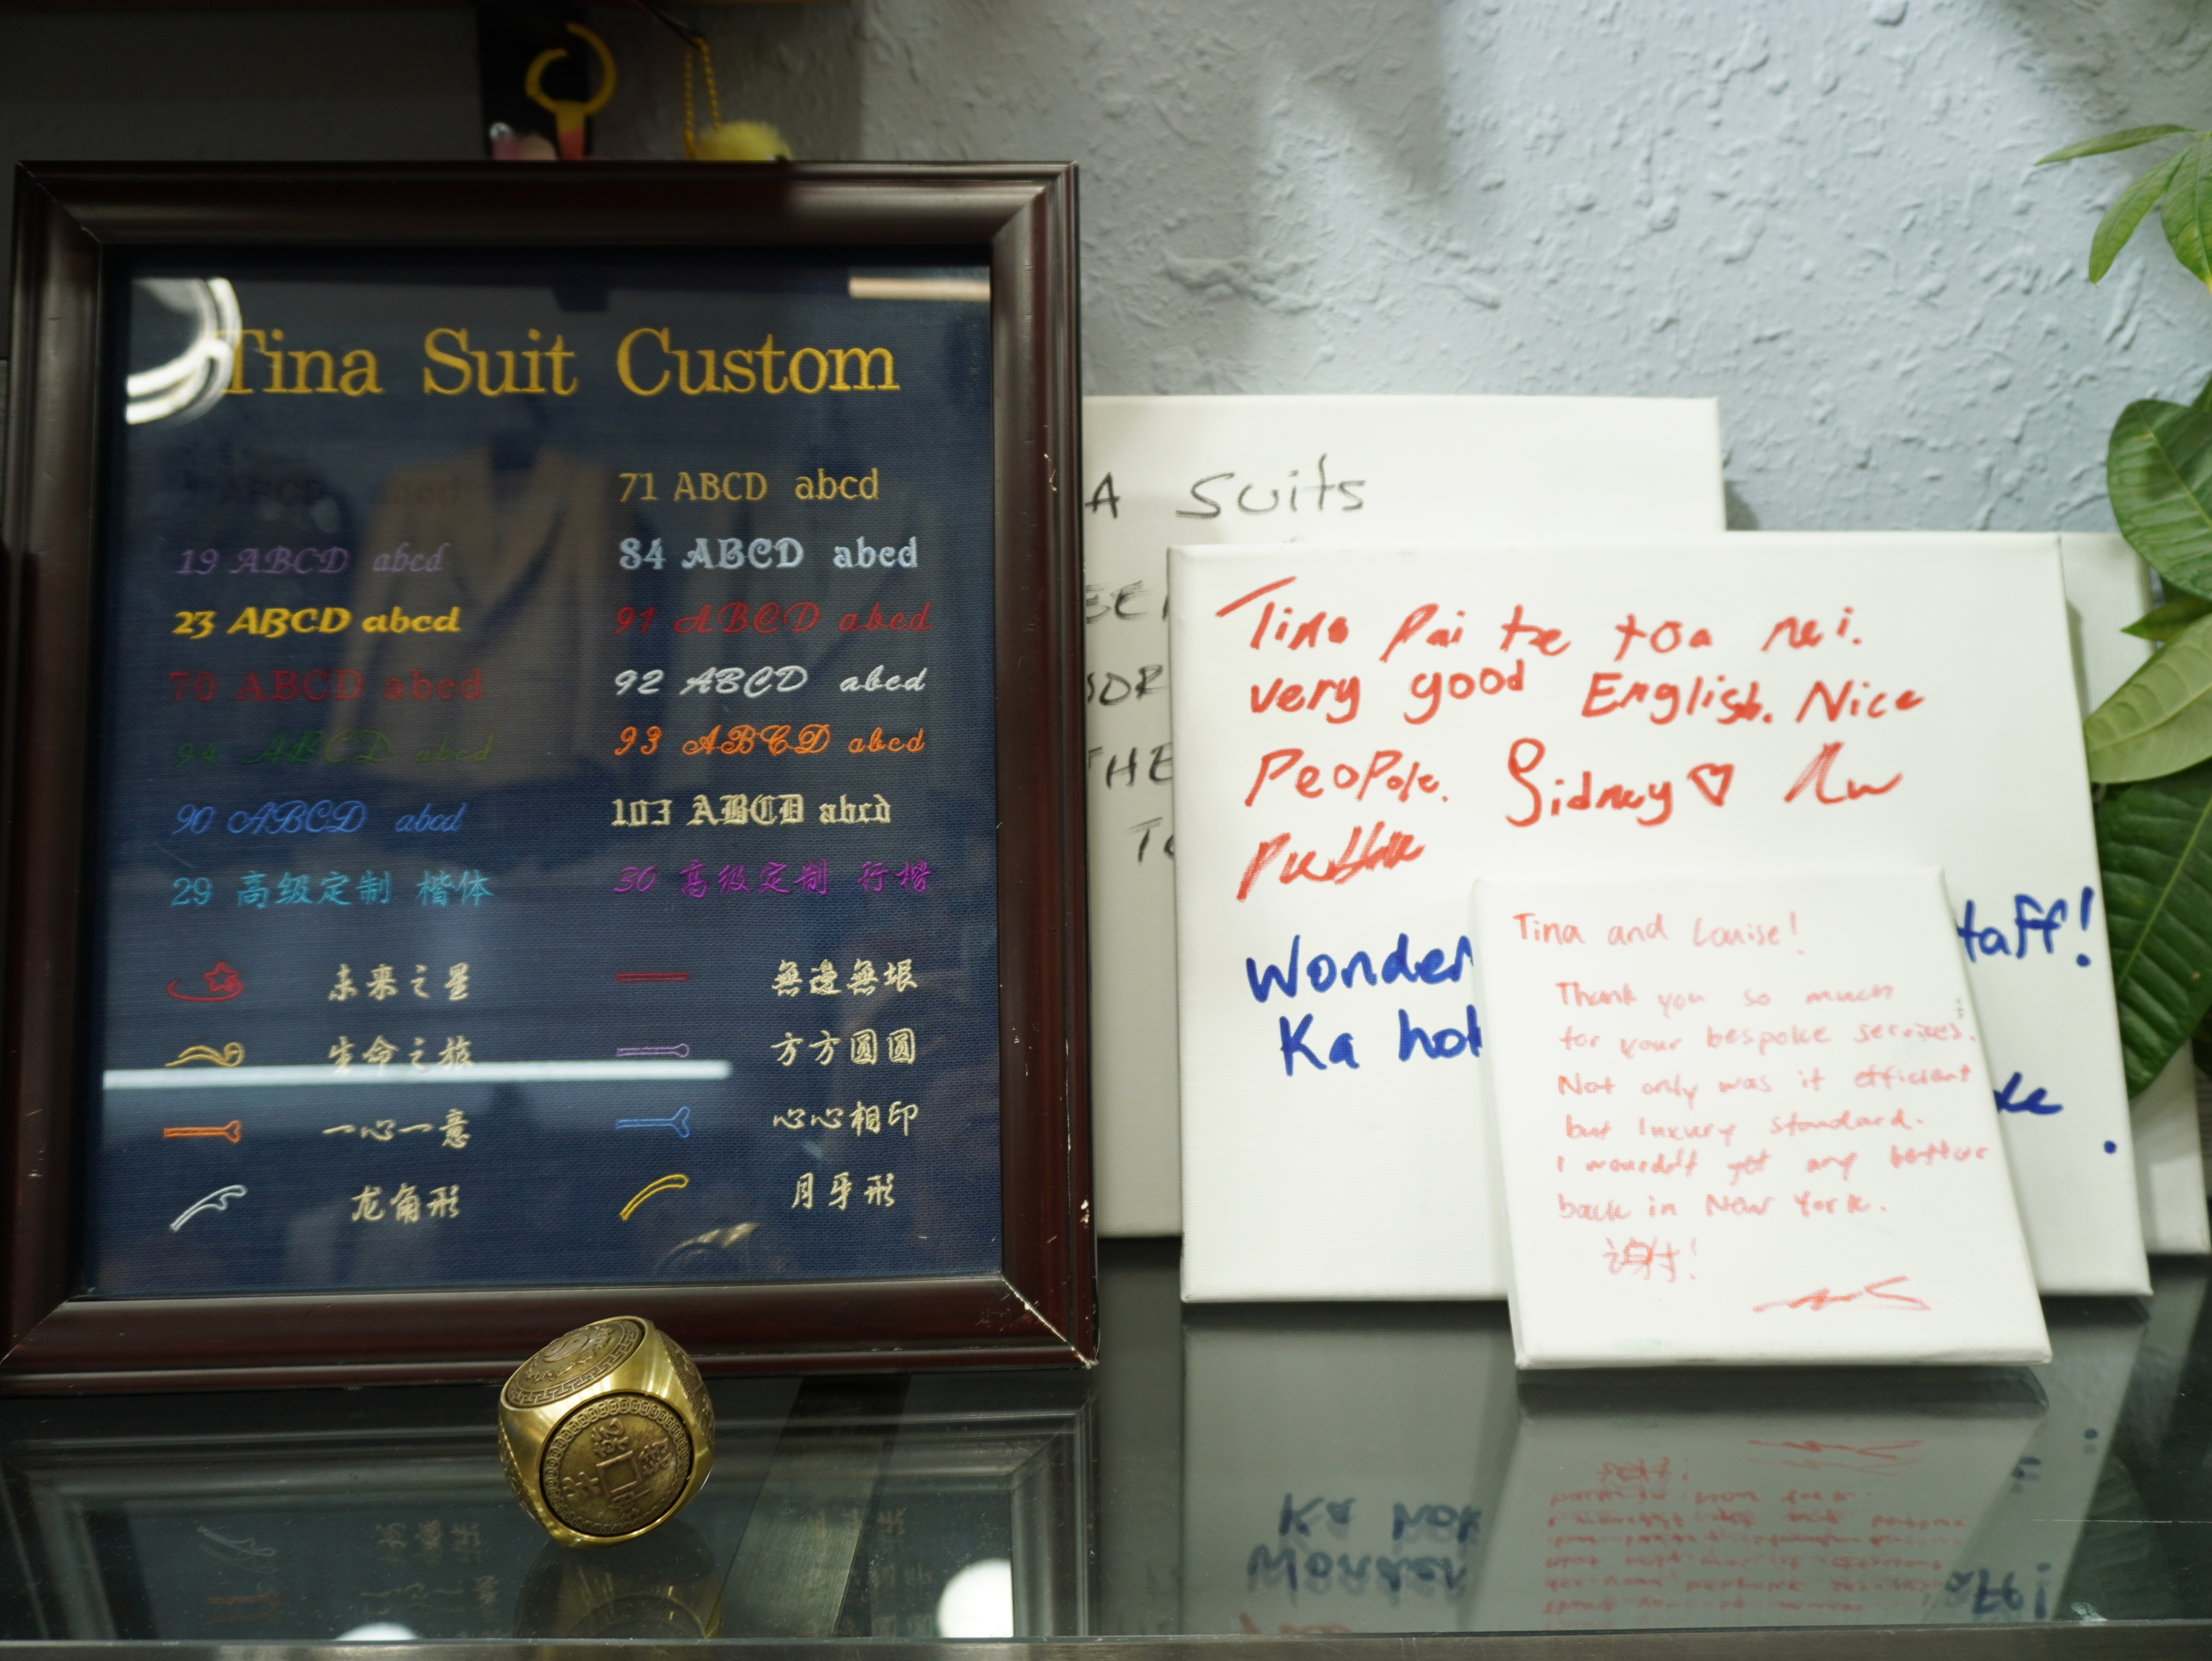 Tina Suit Custom
ABCD
19 ABCD abcd
23 ABCD abcd
70 ABCD abcd
94 ABCD abcd
90 ABCD abcd
29 高级定制 楷体
71 ABCD abcd
84 ABCD abcd
91 ABCD abcd
92 ABCD abcd
93 ABCD abcd
103 ABCD abcd
30 高级定制 行楷
未来之星
無邊無垠
生命之旅
方方圆圆
一心一意
心心相印
龙角形
月牙形
A Suits
THE
Tina Pai tse toa nei.
very good English. Nice
People. Sidney
Wonder
taff!
Ka
Tina and Louise!
Thank you so much
for your bespoke services.
Not only was it efficient
but luxury standard.
I wouldn't get any better
back in New York.